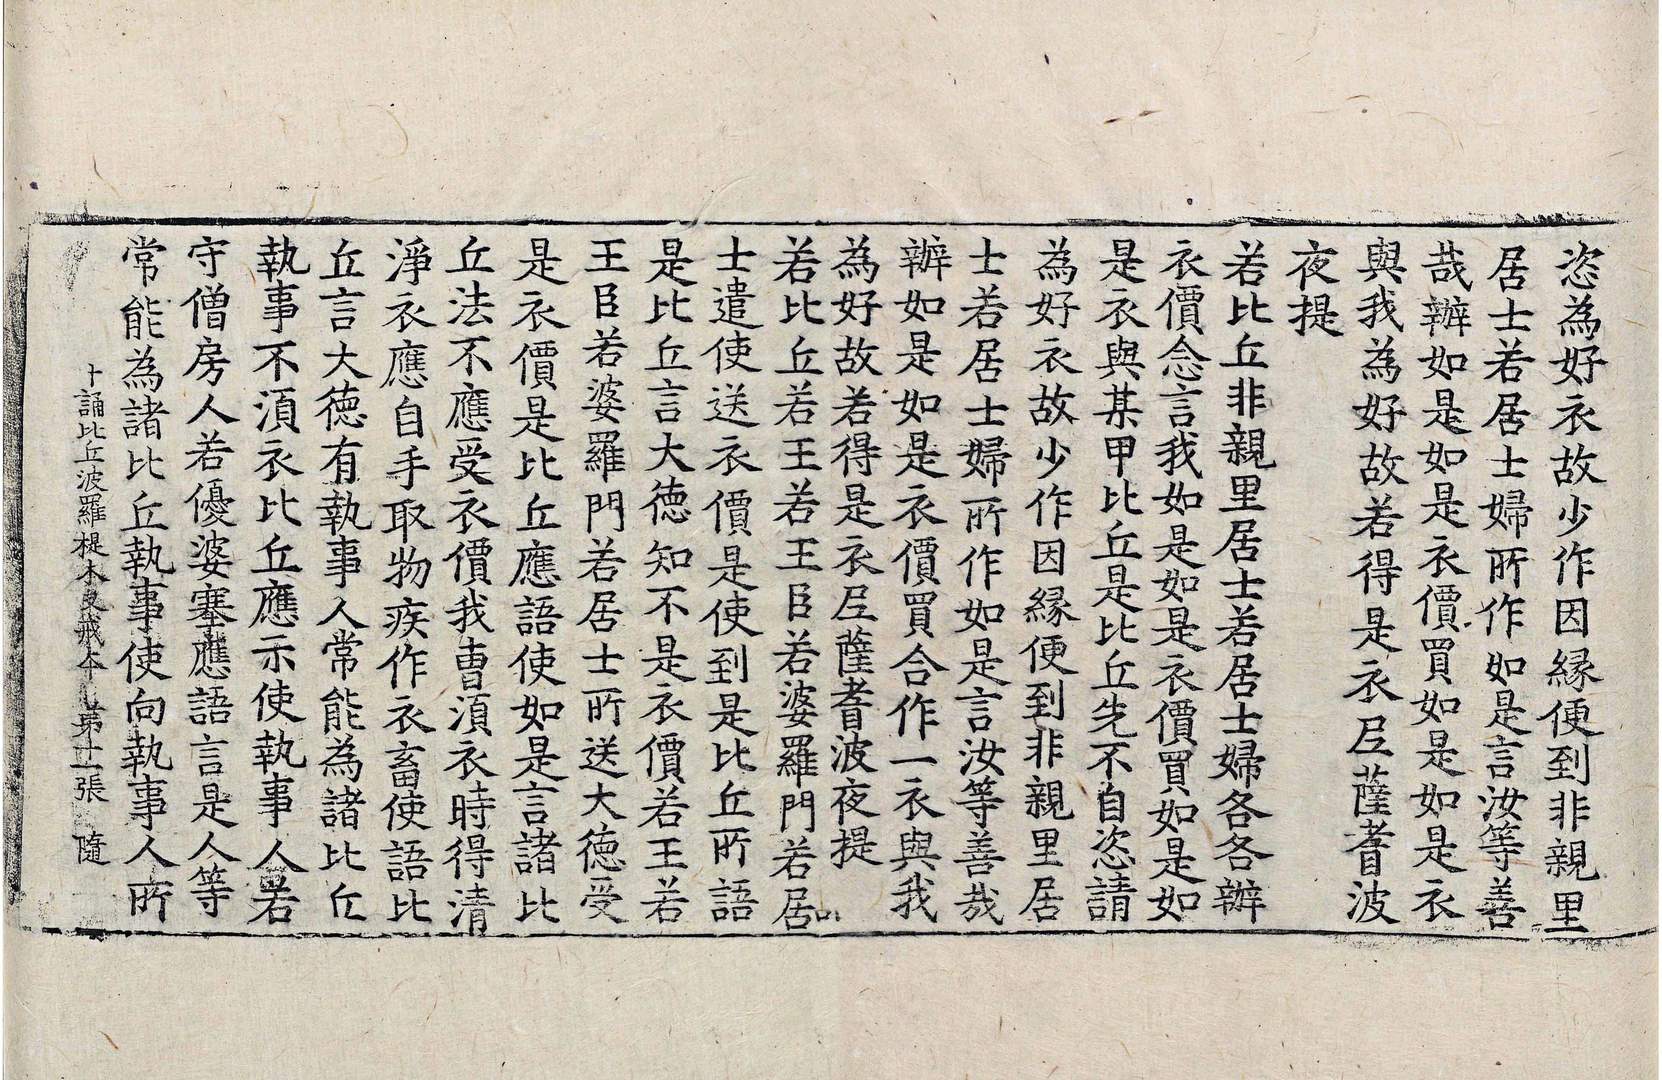 恣為好衣故少作因緣便到非親里
居士若居士婦所作如是言汝等善
哉辦如是如是衣價買如是如是衣
與我為好故若得是衣尼薩耆波
夜提
若比丘非親里居士若居士婦各各辦
衣價念言我如是如是衣價買如是如
是衣與某甲比丘是比丘先不自恣請
為好衣故少作因緣便到非親里居
士若居士婦所作如是言汝等善哉
辦如是如是衣價買合作一衣與我
為好故若得是衣尼薩耆波夜提
若比丘若王若王臣若婆羅門若居
士遣使送衣價是使到是比丘所語
是比丘言大德知不是衣價若王若
王臣若婆羅門若居士所送大德受
是衣價是比丘應語使如是言諸比
丘法不應受衣價我曹湏衣時得清
淨衣應自手取物疾作衣畜使語比
丘言大德有執事人常能為諸比丘
執事不湏衣比丘應示使執事人若
守僧房人若優婆塞應語言是人等
常能為諸比丘執事使向執事人所
十誦比丘波羅提木叉戒本 第十一張 隨